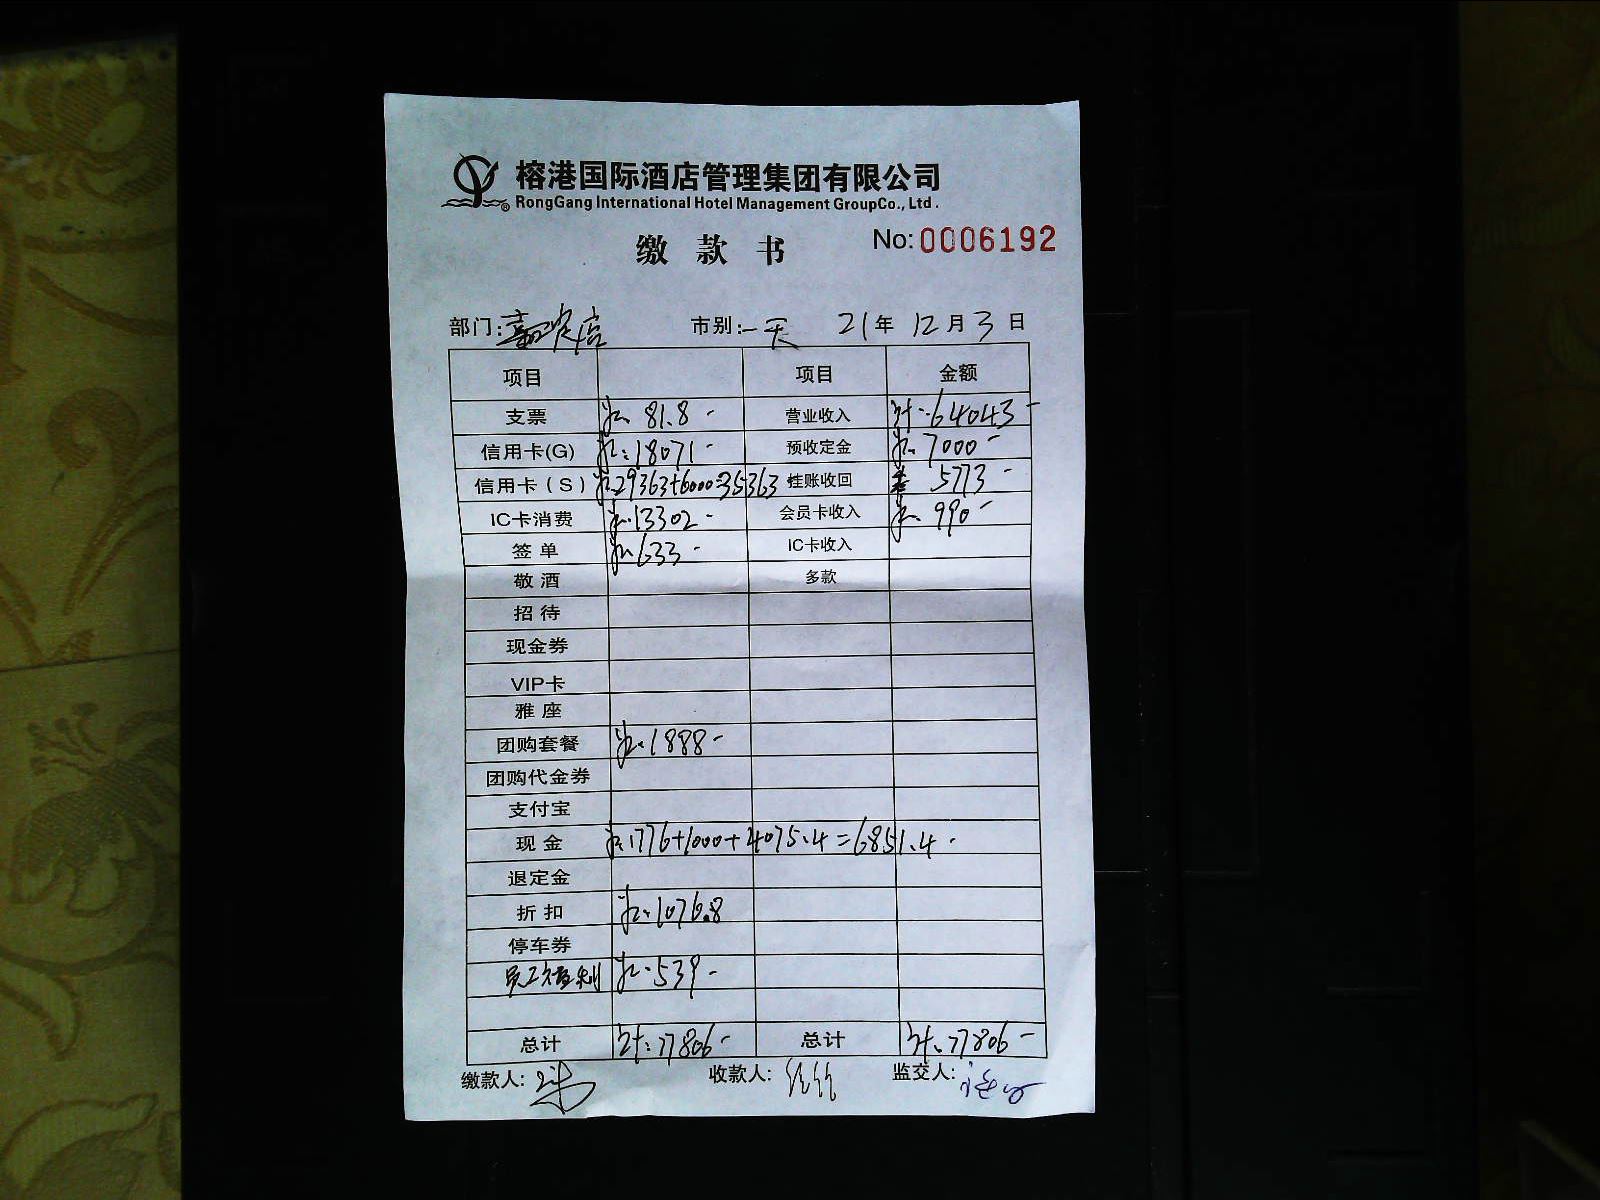 榕港国际酒店管理集团有限公司
RongGang International Hotel Management GroupCo., Ltd.
缴款书
No:0006192
部门: 市别:一天 21年12月3日
项目 项目 金额
支票 81.8- 营业收入 计:64043-
信用卡(G) 18071- 预收定金 7000-
信用卡(S) 29363+6000=35363 挂账收回 5773-
IC卡消费 13302- 会员卡收入 990-
签单 633- IC卡收入
敬酒 多款
招待
现金券
VIP卡
雅座
团购套餐 1888-
团购代金券
支付宝
现金 1776+1000+4075.4=6851.4-
退定金
折扣 1076.8
停车券
员工福利 539-
总计 计:77806- 总计 计:77806-
缴款人: 收款人: 监交人: